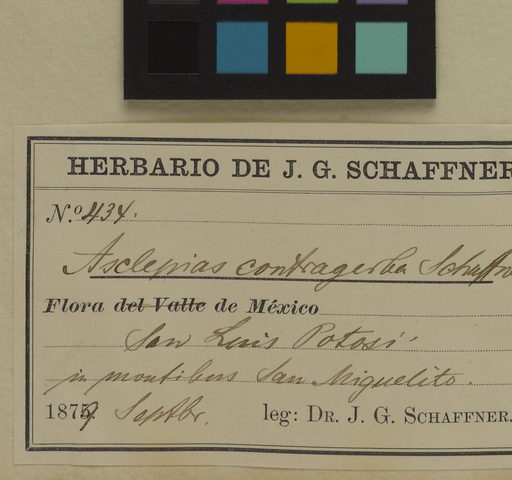 HERBARIO DE J. G. SCHAFFNER
N.º 434.
Asclepias contragerba Schaffn
Flora del Valle de México
San Luis Potosi
in montibus San Miguelito.
1879 Septbr. leg: DR. J. G. SCHAFFNER.